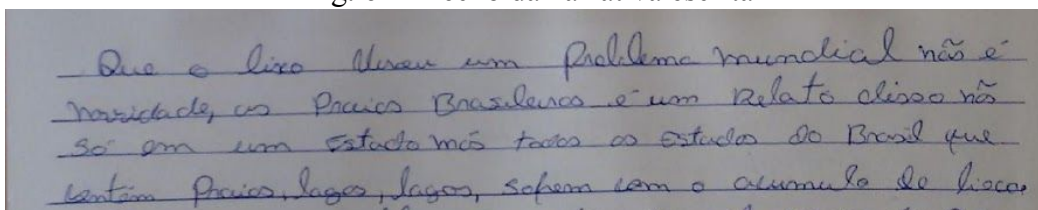 Que o lixo virou um Problema mundial não é
novidade, as Praias Brasileiras é um Relato disso não
só em um Estado mas todos os Estados do Brasil que
contém Praias, lagos, lagos, sofrem com o acumulo de lixos,